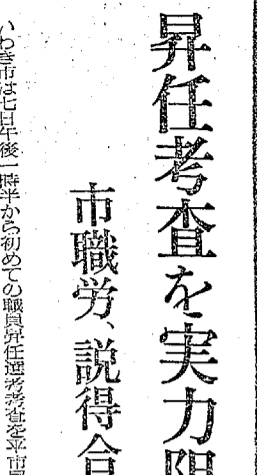 昇任考査を実力阻
市職労、説得合
いわき市は七日午後一時半から初めての職員昇任選考考査を平市